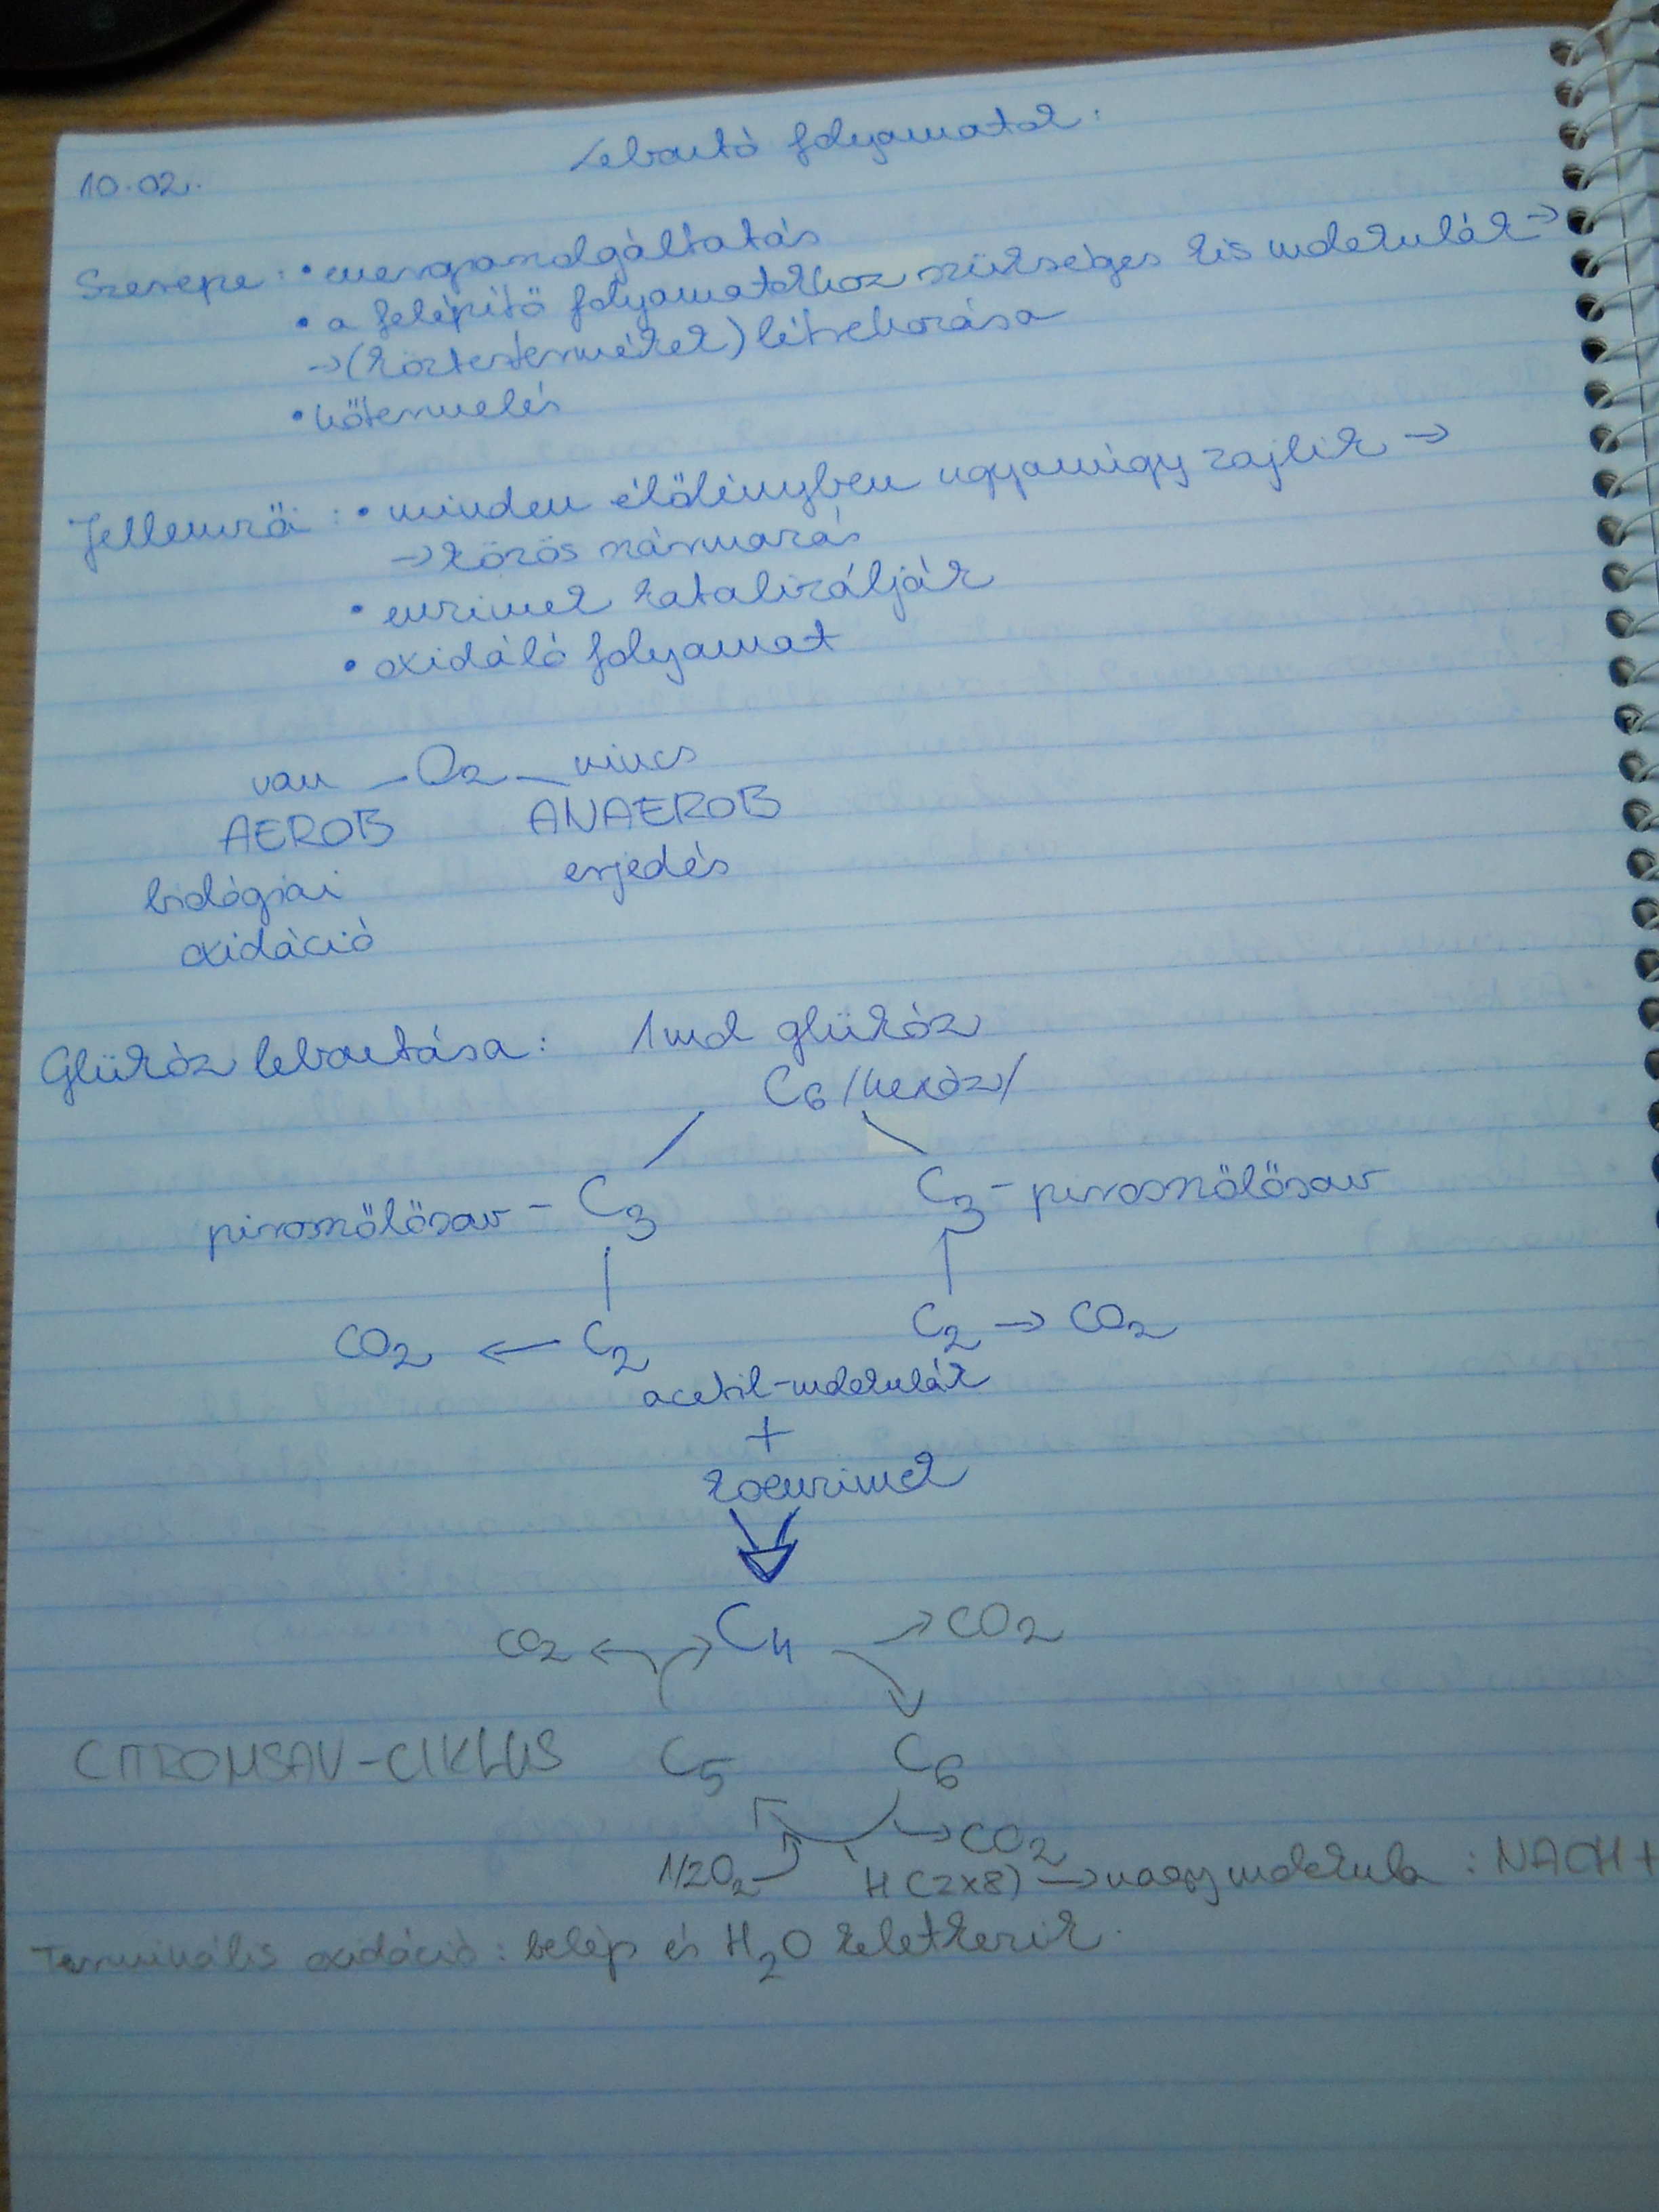 Lebontó folyamatok:
10.02.
Szerepe: • energiaszolgáltatás
• a felépítő folyamatokhoz szükséges kis molekulák →
→ (köztestermékek) létrehozása
• hőtermelés
Jellemzői: • minden élőlényben ugyanúgy zajlik →
→ közös származás
• enzimek katalizálják
• oxidáló folyamat
van – O2 – nincs
AEROB ANAEROB
biológiai erjedés
oxidáció
Glükóz lebontása: 1 mol glükóz
C6 /hexóz/
piroszőlősav – C3 C3 – piroszőlősav
CO2 ← C2 C2 → CO2
acetil-molekulák
+
koenzimek
CO2 ← → C4 → CO2
CITROMSAV-CIKLUS C5 C6
→ CO2
1/2O2 H (2x8) → nagy molekula : NADH +
Terminális oxidáció: belép és H2O keletkezik.